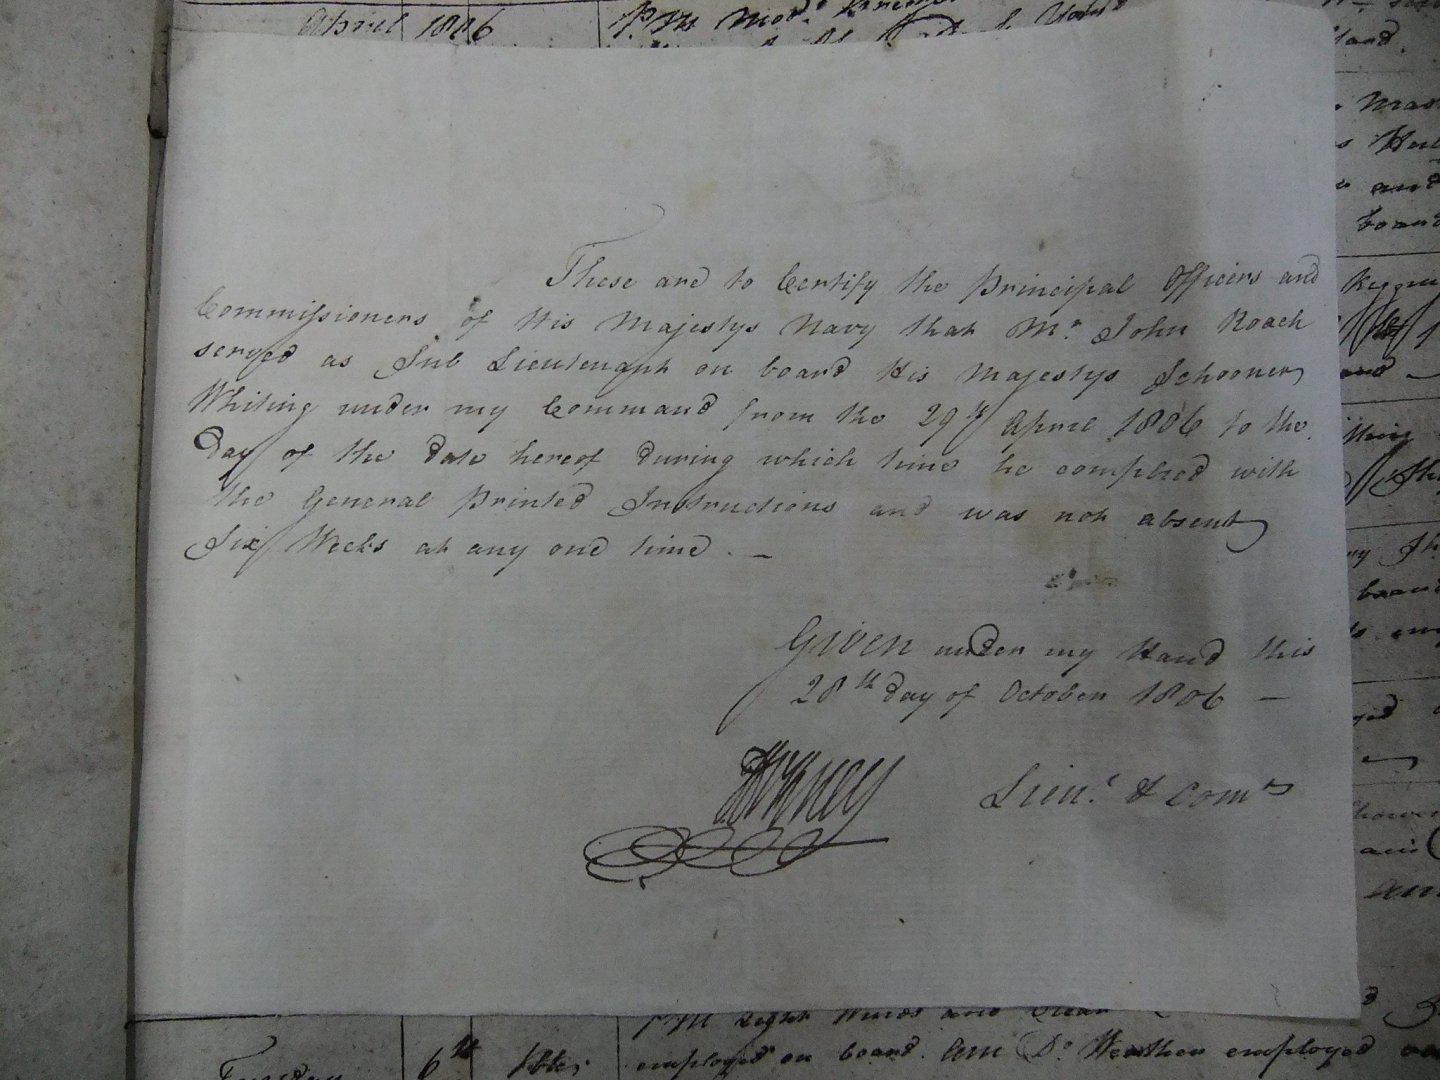 April 1806
P.M. Mod.
land.
These are to Certify the Principal Officers and
Commissioners of His Majestys Navy that Mr. John Roach
served as Sub Lieutenant on board His Majestys Schooner
Whiting under my Command from the 29th April 1806 to the
Day of the Date hereof during which time he complied with
the General Printed Instructions and was not absent
Six Weeks at any one time. —
Given under my Hand this
28th Day of October 1806 —
Lieut. & Comr
and
board
and
PM Light Winds and Clear
Tuesday 6th employed on board. AM Do. Weather employed